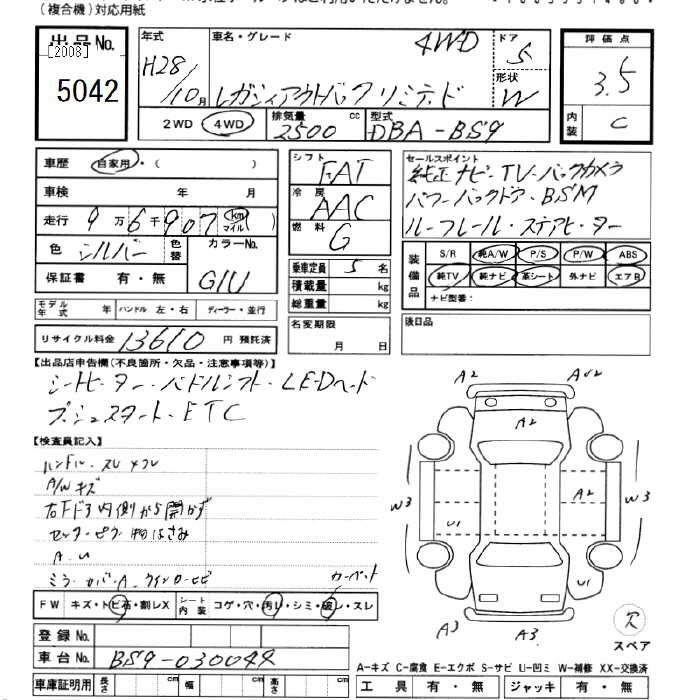 (複合機)対応用紙
出品No. [2008] 5042
年式 H28/10月
車名・グレード 4WD レガシィアウトバックリミテッド
ドア 5
形状 W
評価点 3.5
内装 C
2WD 4WD
排気量 2500 cc
型式 DBA-BS9
車歴 自家用・( )
車検 年 月
走行 9万6千907 km マイル ( )
色 シルバー 色替 カラーNo. G1U
保証書 有・無
シフト FAT
冷房 AAC
燃料 G
乗車定員 5名
積載量 kg
総重量 kg
セールスポイント
純正ナビ-TV-バックカメラ
パワーバックドア・BSM
ルーフレール・ステアヒーター
装備品 S/R 純A/W P/S P/W ABS
純TV 純ナビ 革シート 外ナビ エアB
ナビ型番:
モデル年式 年 ハンドル 左・右 ディーラー・並行
リサイクル料金 13610 円 預託済
名変期限 月 日
後日品
【出品店申告欄(不良箇所・欠品・注意事項等)】
シートヒーター・パドルシフト・LEDヘッド
プッシュスタート・ETC
【検査員記入】
ハンドル・スレ
A/Wキズ
右Fドア内側から開かず
A・U
ミラーカバーA
カーペット
FW キズ・トビ石・割レX シート内装 コゲ・穴・汚レ・シミ・破レ・スレ
登録No.
車台No. BS9-030044
車庫証明用 長さ cm 幅 cm 高さ cm
A2 AU2
A2
A2
W3 W3
U1
U1
A3 A3
欠
スペア
A-キズ C-腐食 E-エクボ S-サビ U-凹ミ W-補修 XX-交換済
工具 有・無 ジャッキ 有・無